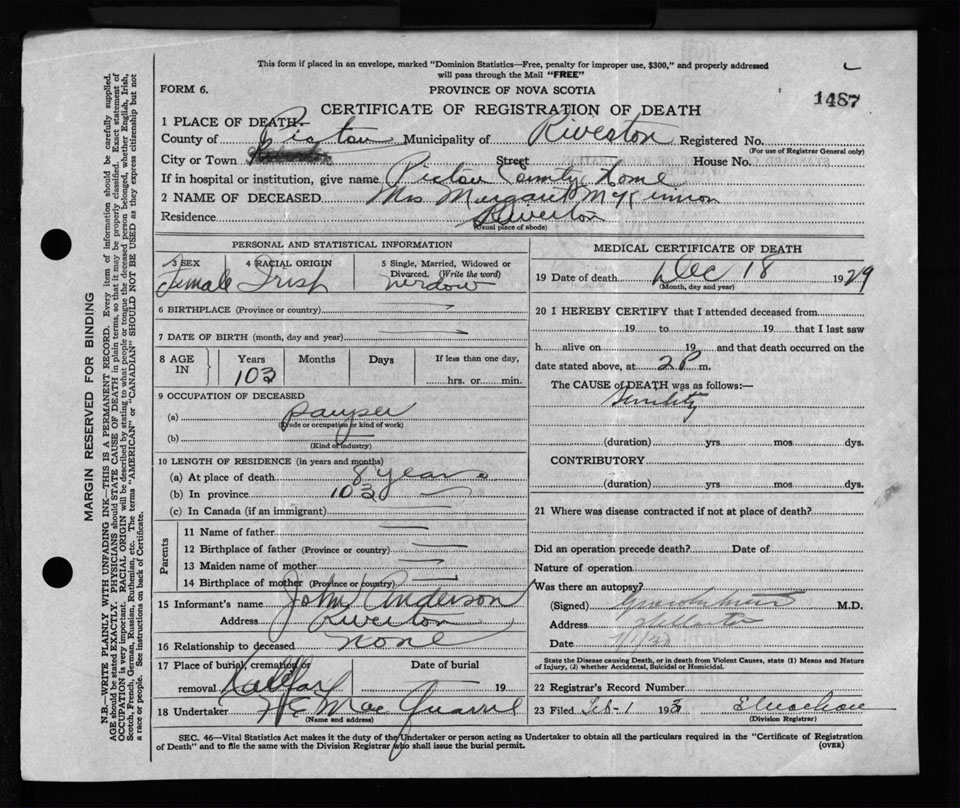 This form if placed in an envelope, marked "Dominion Statistics—Free, penalty for improper use, $300," and properly addressed
will pass through the Mail "FREE"
FORM 6.
PROVINCE OF NOVA SCOTIA
1487
CERTIFICATE OF REGISTRATION OF DEATH
1 PLACE OF DEATH—
County of Pictou Municipality of Riverton Registered No.
(For use of Registrar General only)
City or Town Street House No.
If in hospital or institution, give name Pictou County Home
2 NAME OF DECEASED Mrs Margaret McKinnon
Residence Riverton
(Usual place of abode)
PERSONAL AND STATISTICAL INFORMATION
3 SEX 4 RACIAL ORIGIN 5 Single, Married, Widowed or
Divorced. (Write the word)
Female Irish widow
6 BIRTHPLACE (Province or country)
7 DATE OF BIRTH (month, day and year)
8 AGE IN Years Months Days If less than one day,
103 hrs. or min.
9 OCCUPATION OF DECEASED
(a) pauper
(Trade or occupation or kind of work)
(b)
(Kind of industry)
10 LENGTH OF RESIDENCE (in years and months)
(a) At place of death 8 years
(b) In province 103
(c) In Canada (if an immigrant)
Parents
11 Name of father
12 Birthplace of father (Province or country)
13 Maiden name of mother
14 Birthplace of mother (Province or country)
15 Informant's name John Anderson
Address Riverton
16 Relationship to deceased none
17 Place of burial, cremation or Date of burial
removal Halifax 19
18 Undertaker H E MacQuarrie
(Name and address)
MEDICAL CERTIFICATE OF DEATH
19 Date of death Dec 18 1929
(Month, day and year)
20 I HEREBY CERTIFY that I attended deceased from
19 to 19 that I last saw
h alive on 19 and that death occurred on the
date stated above, at 2 P m.
The CAUSE of DEATH was as follows:—
Senility
(duration) yrs mos dys.
CONTRIBUTORY
(duration) yrs mos dys.
21 Where was disease contracted if not at place of death?
Did an operation precede death? Date of
Nature of operation
Was there an autopsy?
(Signed) M.D.
Address Stellarton
Date
State the Disease causing Death, or in death from Violent Causes, state (1) Means and Nature
of Injury, (2) whether Accidental, Suicidal or Homicidal.
22 Registrar's Record Number
23 Filed Feb-1 193
(Division Registrar)
SEC. 46—Vital Statistics Act makes it the duty of the Undertaker or person acting as Undertaker to obtain all the particulars required in the "Certificate of Registration
of Death" and to file the same with the Division Registrar who shall issue the burial permit.
(OVER)
MARGIN RESERVED FOR BINDING
N.B.—WRITE PLAINLY WITH UNFADING INK—THIS IS A PERMANENT RECORD. Every item of information should be carefully supplied.
AGE should be stated EXACTLY. PHYSICIANS should STATE CAUSE OF DEATH in plain terms, so that it may be properly classified. Exact statement of
OCCUPATION is very important. RACIAL ORIGIN will be described by stating to what people or tongue the deceased person belonged, whether English, Irish,
Scotch, French, German, Russian, Ruthenian, etc. The terms "AMERICAN" or "CANADIAN" SHOULD NOT BE USED as they express citizenship but not
a race or people. See instructions on back of Certificate.